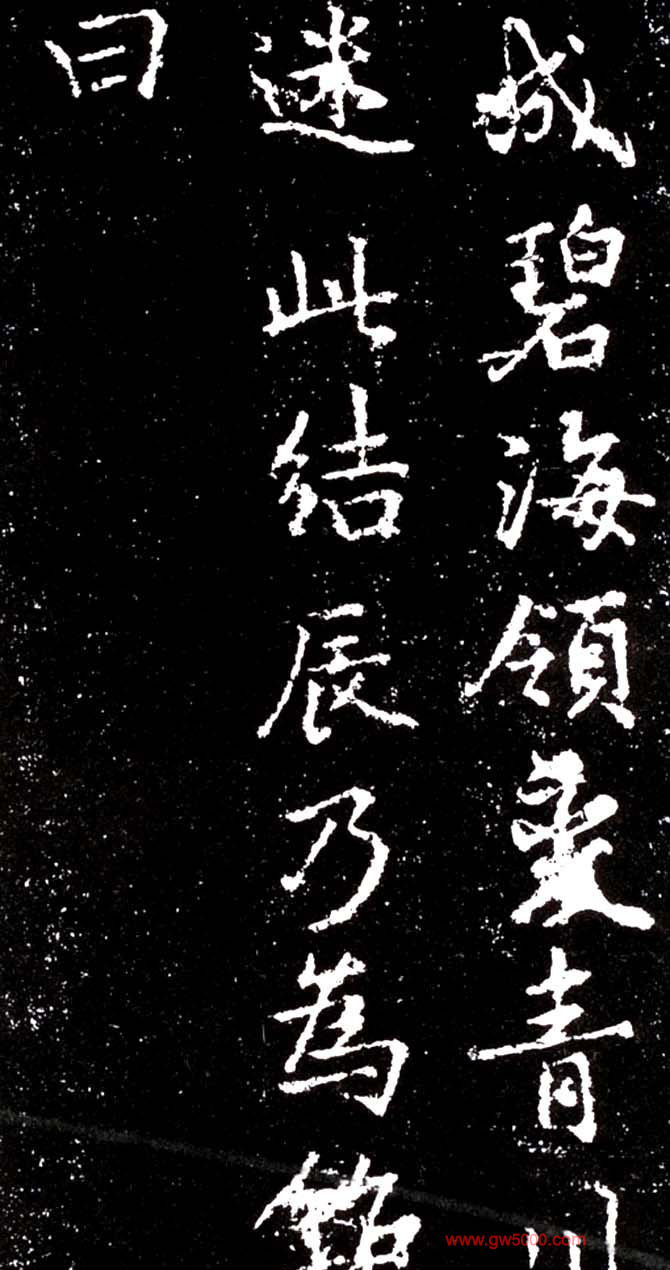 城碧海領青川
迷此結辰乃為銘
曰
www.gw5000.com